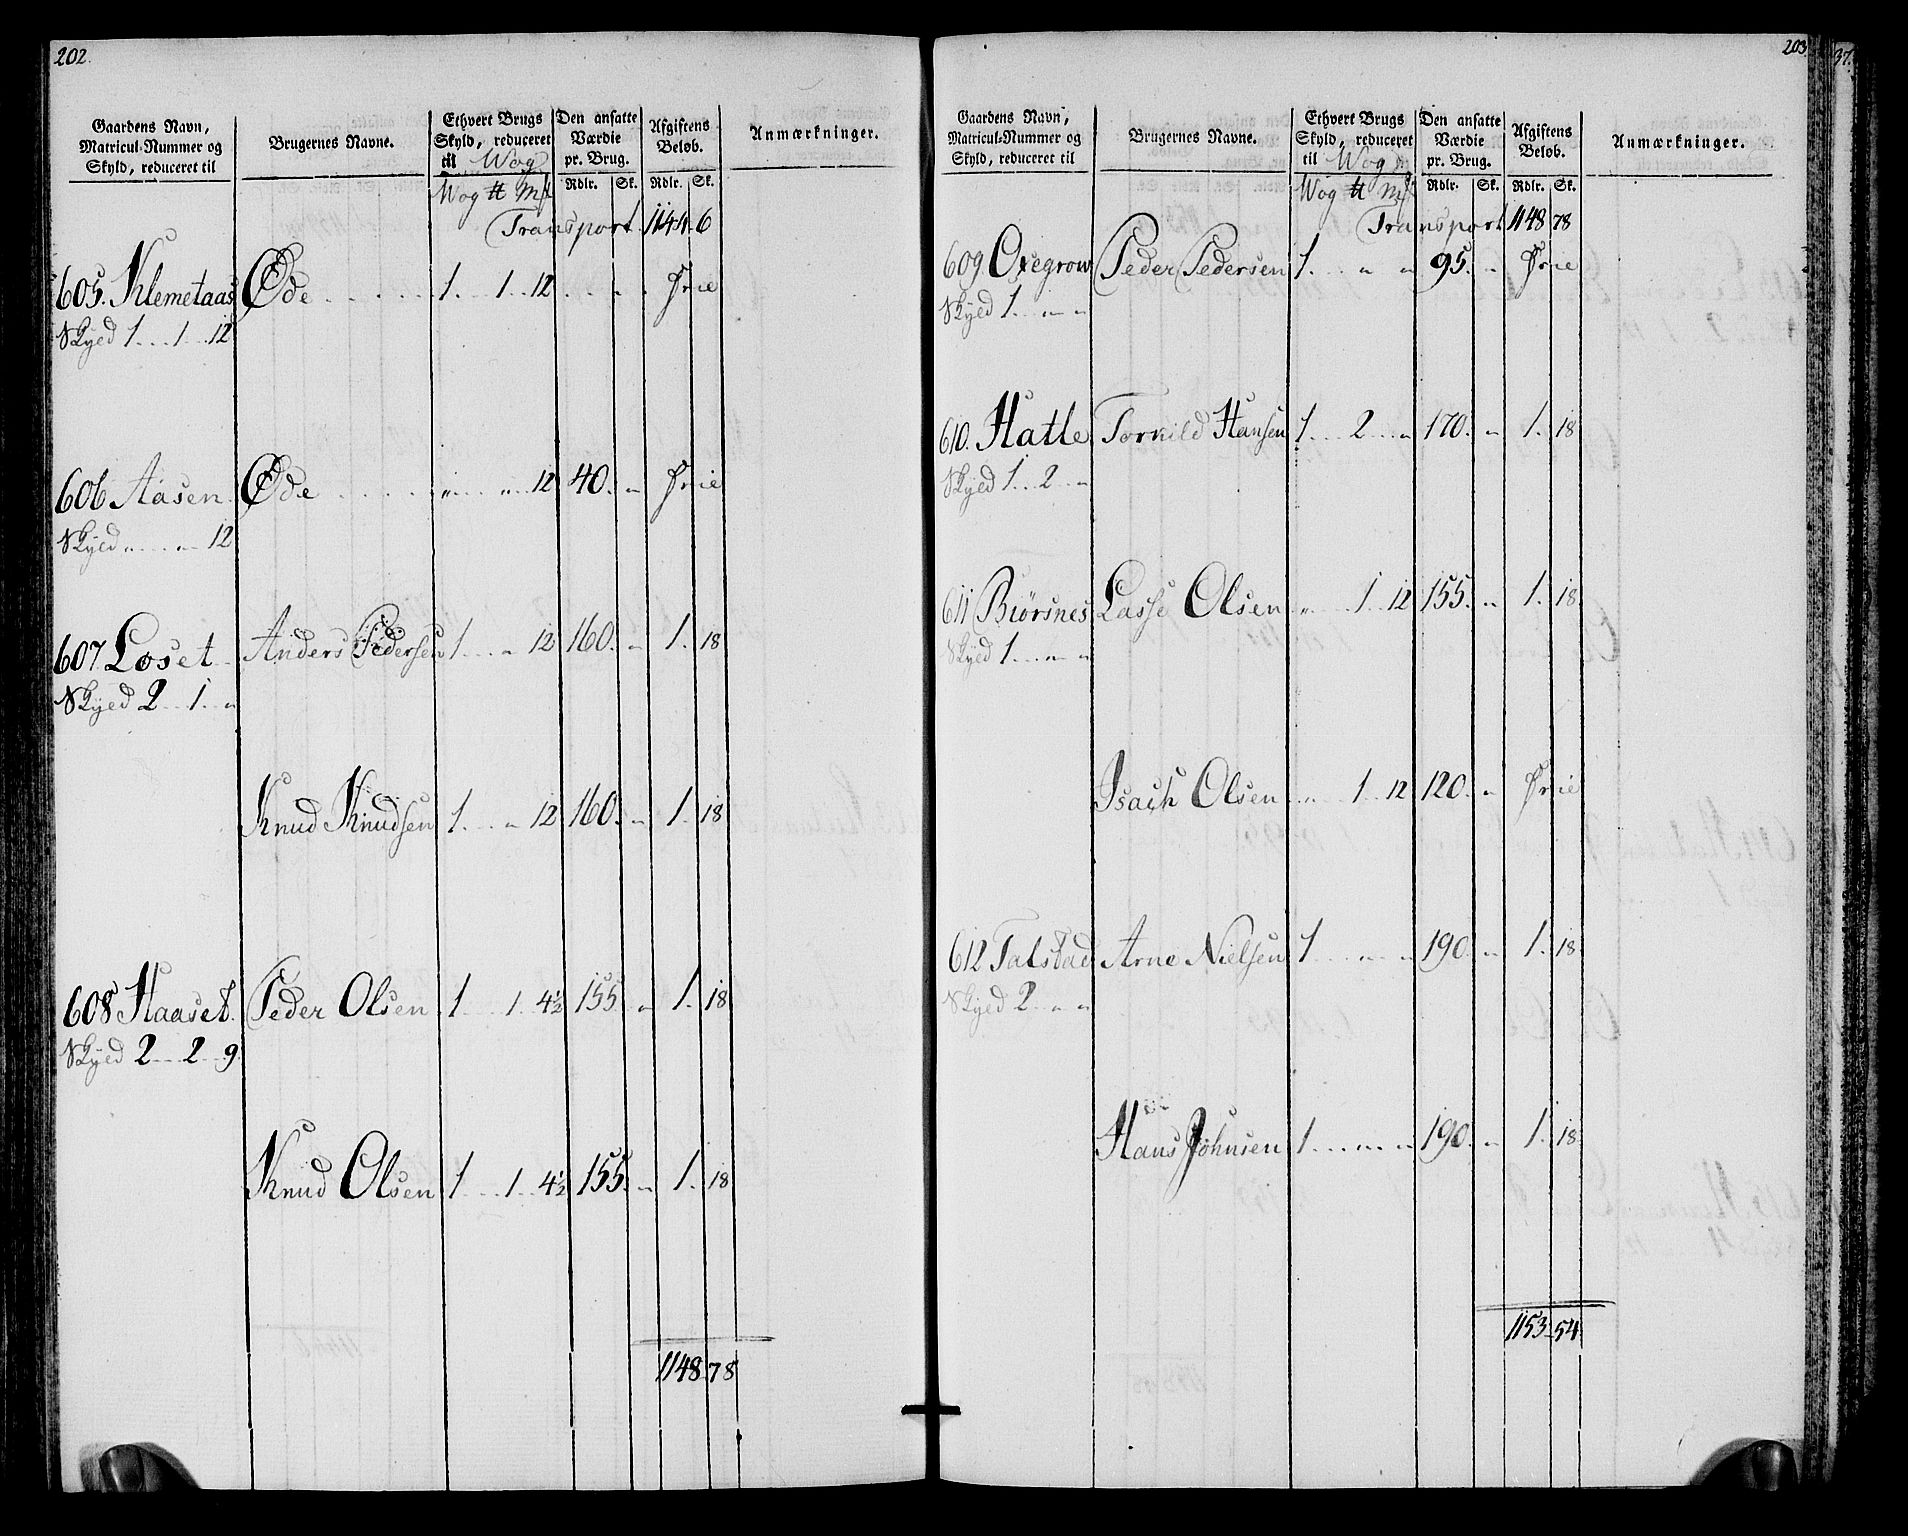 202.
Gaardens Navn, Matricul-Nummer og Skyld, reduceret til | Brugernes Navne. | Ethvert Brugs Skyld, reduceret til Wog | Den ansatte Værdie pr. Brug. | Afgiftens Beløb. | Anmærkninger.
Wog ℔ Mk | Rdlr. | Sk. | Rdlr. | Sk.
Transport 1144 6
605. Klemetaas Øde 1 1 12 " " Frie
Skyld 1 1 12
606 Aasen Øde " " 12 40. " Frie
Skyld " " 12
607 Loset Anders Pedersen 1 " 12 160. " 1. 18
Skyld 2 1 "
Knud Knudsen 1 " 12 160. " 1. 18
608 Haaset. Peder Olsen 1 1 4½ 155 " 1. 18
Skyld 2 2 9
Knud Olsen 1 1 4½ 155. " 1. 18
1148 78
203
Gaardens Navn, Matricul-Nummer og Skyld, reduceret til | Brugernes Navne. | Ethvert Brugs Skyld, reduceret til Wog | Den ansatte Værdie pr. Brug. | Afgiftens Beløb. | Anmærkninger.
Wog ℔ Mk | Rdlr. | Sk. | Rdlr. | Sk.
Transport 1148 78
609 Oxegrow Peder Pedersen 1 " " 95. " Frie
Skyld 1 " "
610. Hatle Torkild Hansen 1 2 " 170. " 1. 18
Skyld 1 2 "
611 Biørsnes Lasse Olsen " 1 12 155. " 1. 18
Skyld 1 " "
Isach Olsen " 1 12 120. " Frie
612 Talstad Arne Nielsen 1 " " 190. " 1. 18
Skyld 2 " "
Hans Johnsen 1 " " 190. " 1. 18
1153 54
37.